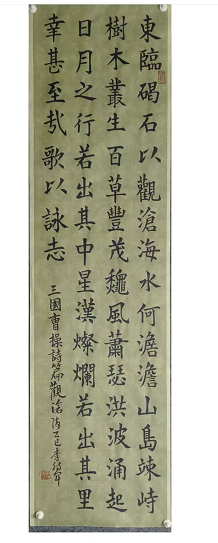 東臨碣石以觀滄海水何澹澹山島竦峙
樹木叢生百草豐茂龝風蕭瑟洪波涌起
日月之行若出其中星漢燦爛若出其里
幸甚至哉歌以詠志
三國曹操詩篇觀滄海